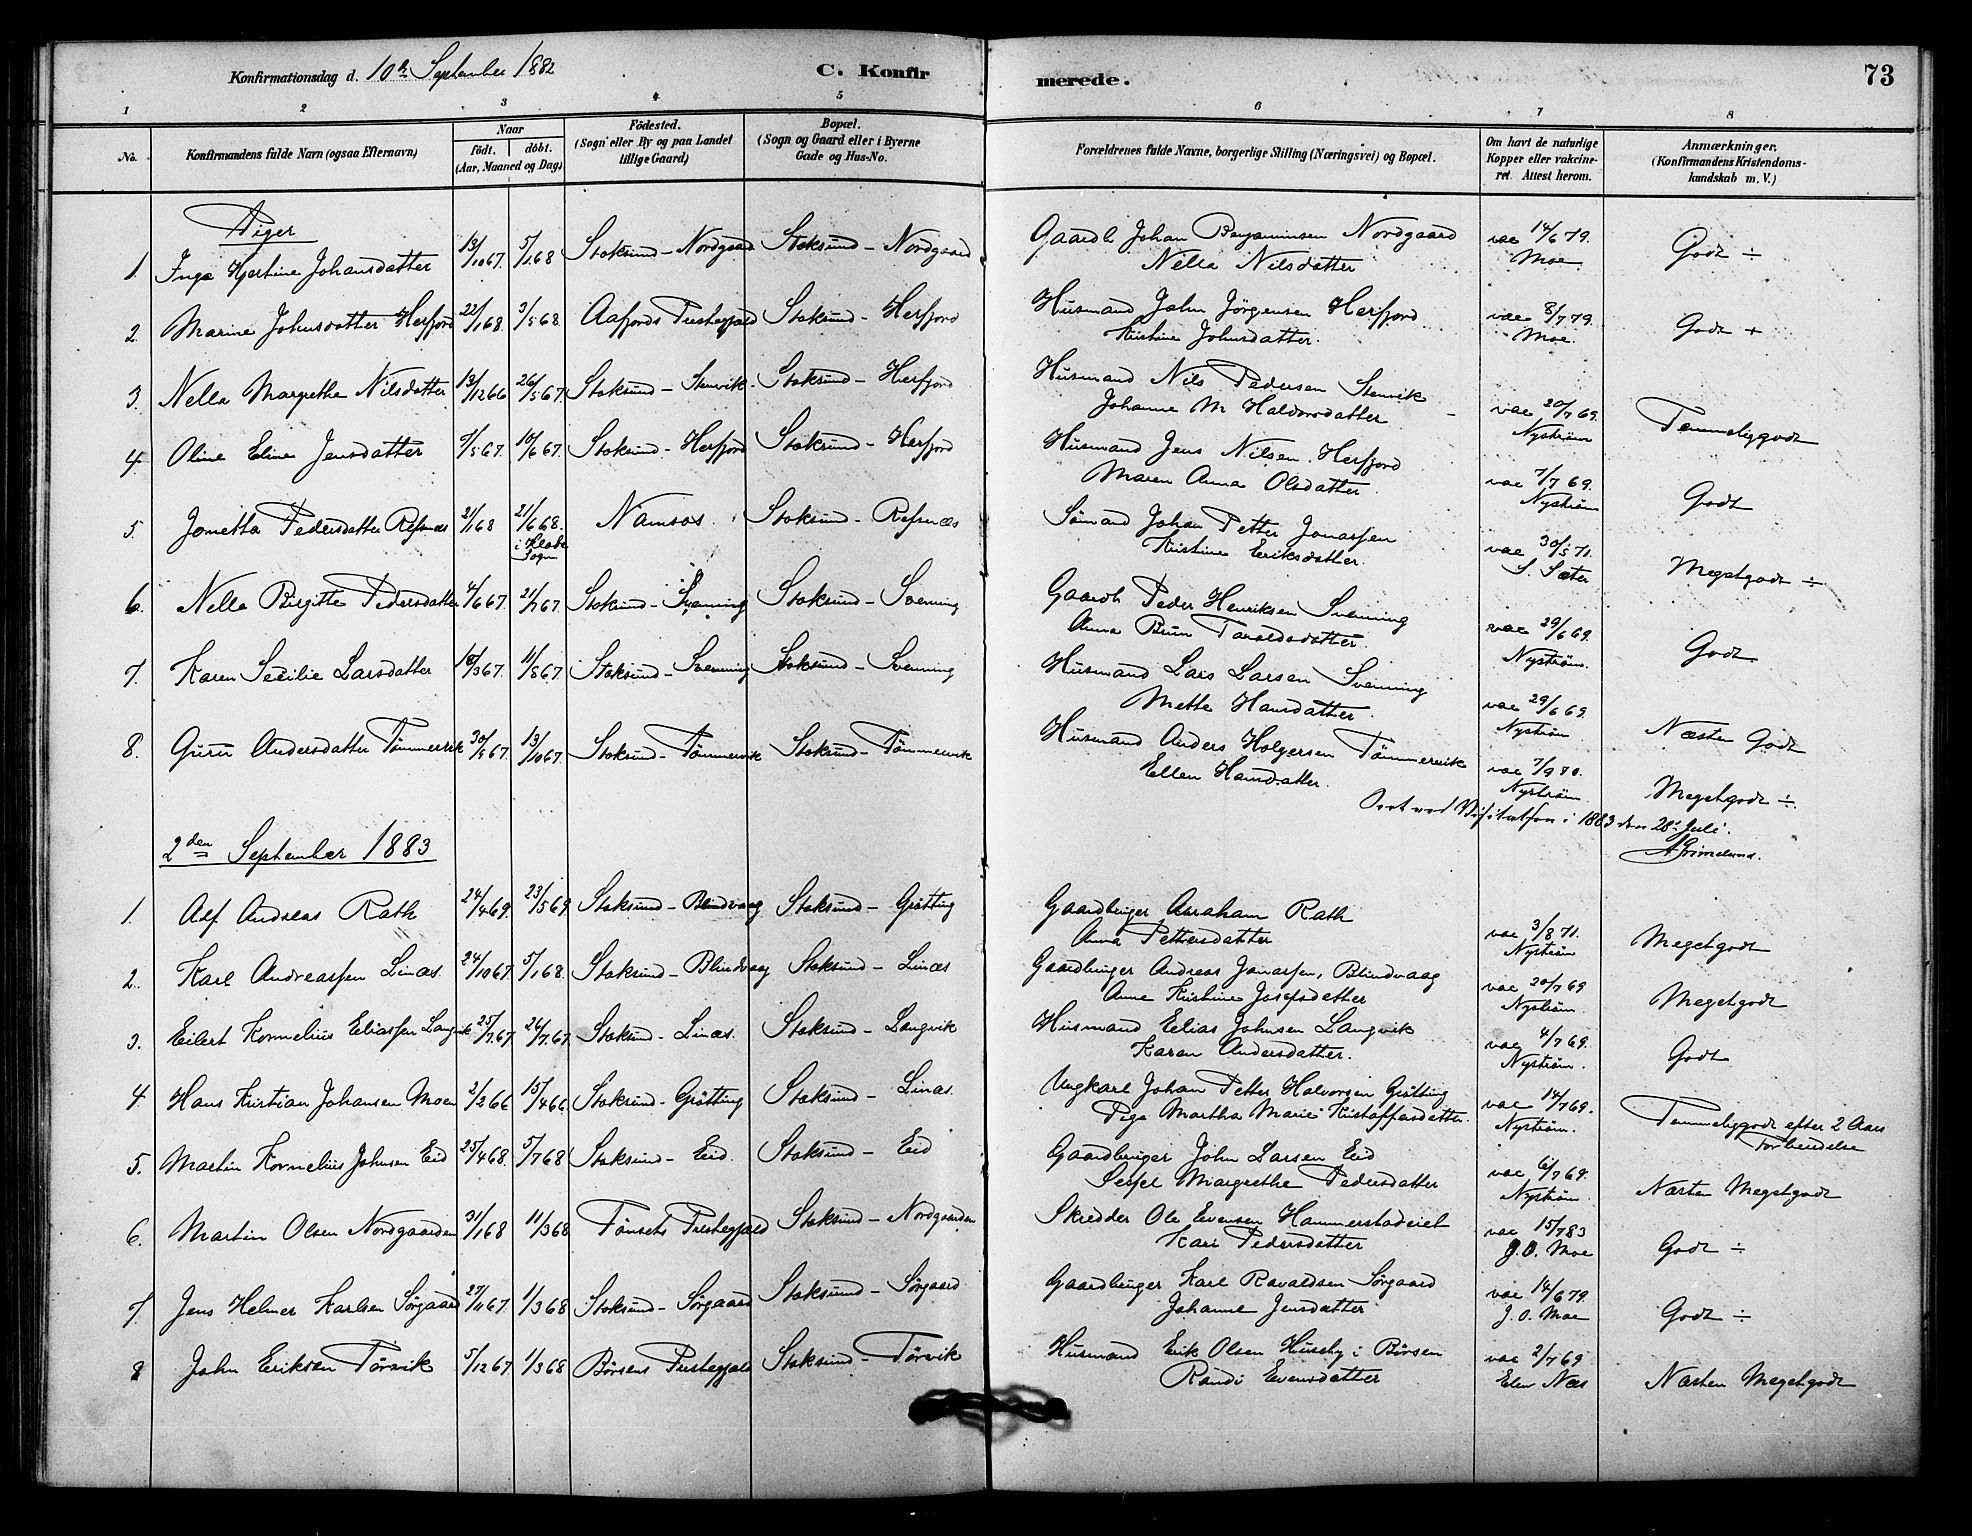 Konfirmationsdag d. 10de September 1882 C. Konfirmerede. 73
1 2 3 4 5 6 7 8
No. Konfirmandens fulde Navn (ogsaa Efternavn) Naar födt. döbt. (Aar, Maaned og Dag) Födested. (Sogn eller By og paa Landet tillige Gaard) Bopæl. (Sogn og Gaard eller i Byerne Gade og Hus-No. Forældrenes fulde Navne, borgerlige Stilling (Næringsvei) og Bopæl. Om havt de naturlige Kopper eller vakcineret. Attest herom. Anmærkninger. (Konfirmandens Kristendomskundskab m. V.)
Piger
1. Inga Hjertine Johansdatter 13/10 67. 5/1 68 Stoksund - Nordgaard Stoksund - Nordgaard Gaardb Johan Benjaminsen Nordgaard vac 14/6 79. Godt ÷
Nella Nilsdatter Moe
2. Marine Johnsdatter Herfjord 22/1 68. 3/5 68. Aafjords Prestegjeld Stoksund - Herfjord Husmand John Jörgensen Herfjord vac 8/7 79. Godt +
Kristine Johnsdatter. Moe.
3. Nella Margrethe Nilsdatter 13/12 66 26/5 67. Stoksund - Stenvik. Stoksund - Herfjord Husmand Nils Pedersen Stenvik vac 20/7 69. Temmeliggodt
Johanne M Haldorsdatter Nystrøm
4. Oline Eline Jensdatter 7/5 67. 10/6 67. Stoksund - Herfjord Stoksund - Herfjord Husmand Jens Nilsen Herfjord vac 7/7 69. Godt
Maren Anna Olsdatter. Nystrøm
5. Jonetta Pedersdatter Refsnæs 21/1 68 21/6 68. i Klabo Sogn Namsos. Stoksund - Refsnæs Sømand Johan Petter Jonassen vac 30/5 71. Megetgodt ÷
Kristine Eriksdatter. S. Sæter
6. Nella Birgitte Pedersdatter 4/6 67. 21/7 67. Stoksund - Svenning Stoksund - Svenning Gaardb Peder Henriksen Svenning vac 29/6 69. Godt
Anna Brun Tavaldsdatter. Nystrøm.
7. Karen Secilie Larsdatter 16/3 67. 11/8 67. Stoksund - Svenning Stoksund - Svenning Husmand Lars Larsen Svenning vac 29/6 69. Næsten Godt
Mette Hansdatter. Nystrøm
8. Guru Andersdatter Tømmervik 30/8 67. 13/10 67. Stoksund - Tømmervik Stoksund - Tømmervik Husmand Anders Holgersen Tømmervik vac 7/9 80. Megetgodt ÷
Ellen Hansdatter. Nystrøm
ved Visitatsen i 1883 den 28de Juli.
A Grimelund.
2den September 1883
1. Alf Andreas Rath 24/4 69. 23/5 69 Stoksund - Blindvaag Stoksund - Grøtting Gaardbruger Abraham Rath vac 3/8 71. Megetgodt
Anna Pettersdatter Nystrøm
2. Karl Andreassen Linæs. 24/10 67. 5/1 68. Stoksund - Blindvaag Stoksund - Linæs Gaardbruger Andreas Jonassen, Blindvaag vac 20/7 69 Megetgodt
Anne Kristine Josefsdatter Nystrøm.
3. Eilert Kornelius Eliassen Langvik 25/7 67. 26/7 67. Stoksund - Linæs. Stoksund - Langvik Husmand Elias Johnsen Langvik vac 4/7 69. Godt
Karen Andersdatter. Nystrøm.
4. Hans Kristian Johansen Moen 2/2 66 15/4 66. Stoksund - Grøtting Stoksund - Linæs. Ungkarl Johan Petter Halvorsen Grøtting vac 14/7 69. Temmeliggodt efter 2 Aars Forberedelse
Pige Martha Marie Kristoffersdatter. Nystrøm.
5. Martin Kornelius Johnsen Eid 25/4 68. 5/7 68 Stoksund - Eid. Stoksund - Eid Gaardbruger John Larsen Eid vac 6/7 69. Næsten Megetgodt
Sessel Margrethe Pedersdatter Nystrøm.
6. Martin Olsen Nordgaarden 31/1 68 11/3 68 Tønsets Prestegjeld Stoksund - Nordgaarden Skredder Ole Evensen Hammerstadeiet vac 15/7 83 Godt ÷
Kari Pedersdatter J. O. Moe
7. Jens Helmer Karlsen Sørgaard 27/11 67. 1/3 68 Stoksund - Sørgaard Stoksund - Sørgaard Gaardbruger Karl Ravaldsen Sørgaard vac 14/6 79. Godt ÷
Johanne Jensdatter J. O. Moe
8 John Eriksen Tørvik 5/12 67. 1/3 68 Børsens Prestegjeld Stoksund - Tørvik Husmand Erik Olsen Huseby i Børsen vac 2/7 69 Næsten Megetgodt
Randi Evensdatter Elen Næs